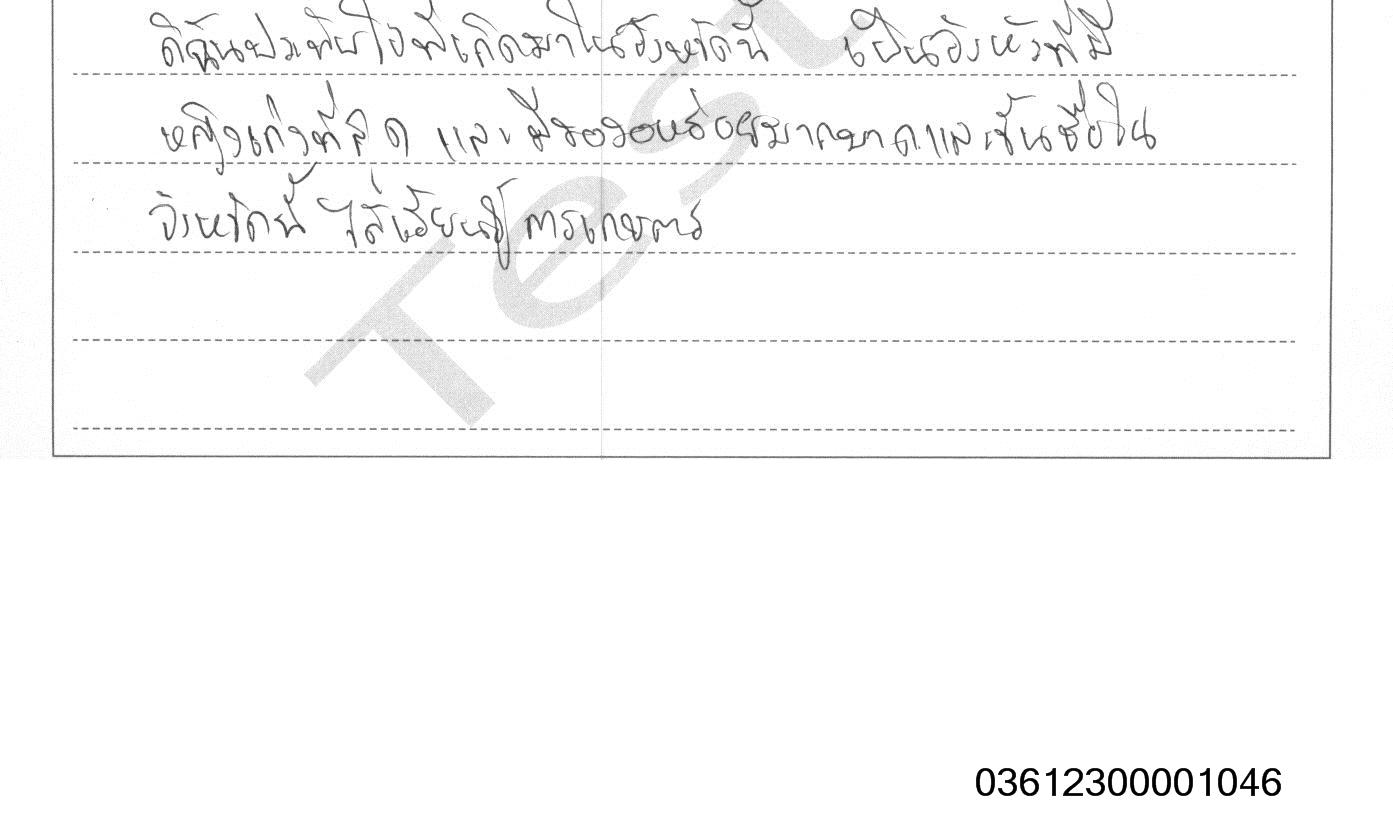 ดิฉันประทับใจที่เกิดมาในจังหวัดนี้ เป็นจังหวัดที่มี
หญิงเก่งที่สุด และมีของอร่อยมากมาย และขึ้นชื่อใน
จังหวัดนี้ ได้เรียนรู้การเกษตร
Test
03612300001046